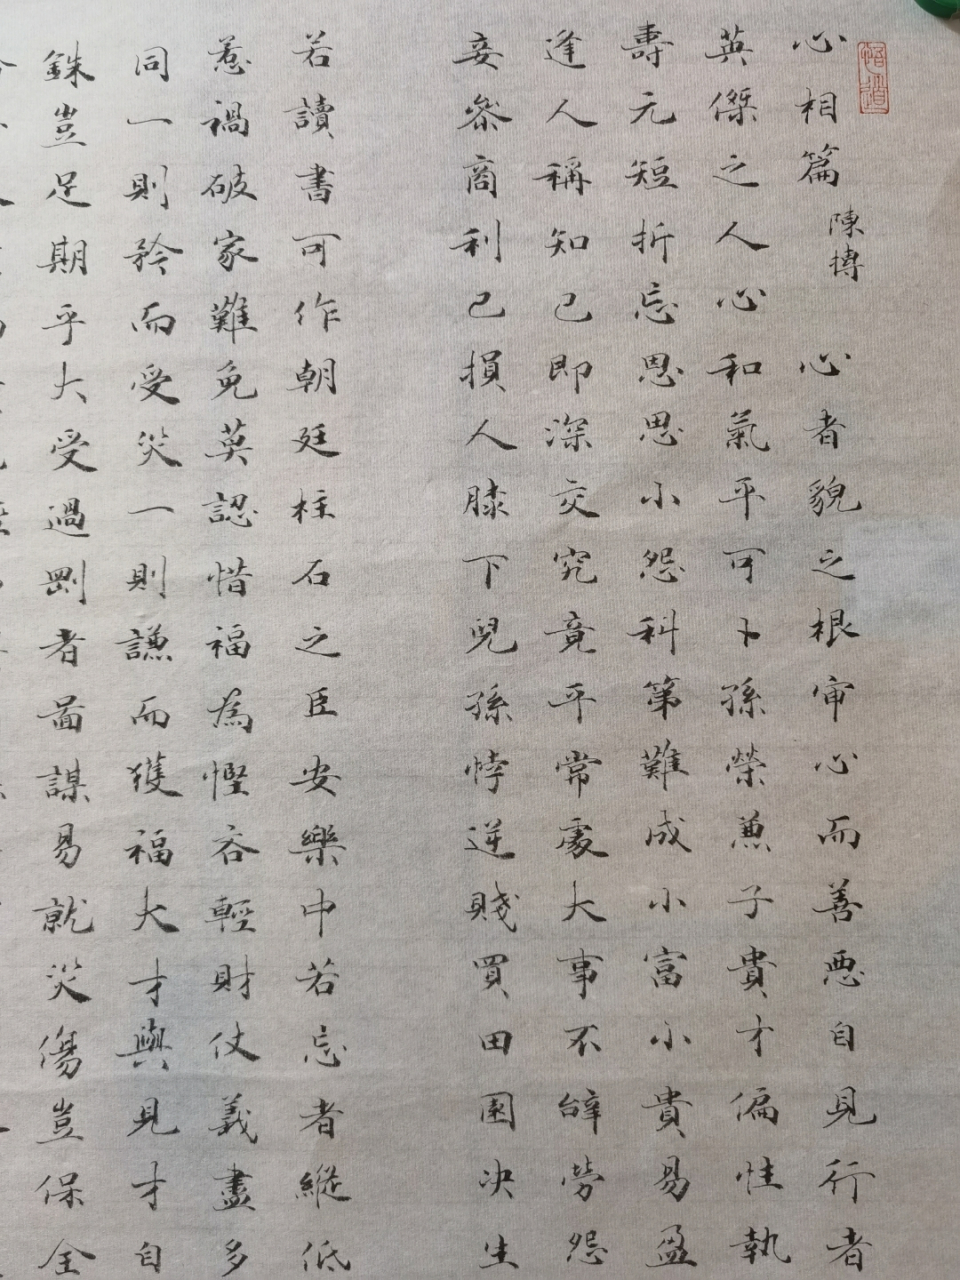 悟道
心相篇 陳摶 心者貌之根审心而善惡自見行者
英傑之人心和氣平可卜孫榮兼子貴才偏性執
壽元短折忘恩思小怨科第難成小富小貴易盈
逢人稱知己即深交究竟平常處大事不辭勞怨
妾參商利己損人膝下兒孫悖逆賤買田園决生
若讀書可作朝廷柱石之臣安樂中若忘者縱低
惹禍破家難免莫認惜福為慳吝輕財仗義盡多
同一則矜而受災一則謙而獲福大才與見才自
銖豈足期乎大受過剛者圖謀易就災傷豈保全